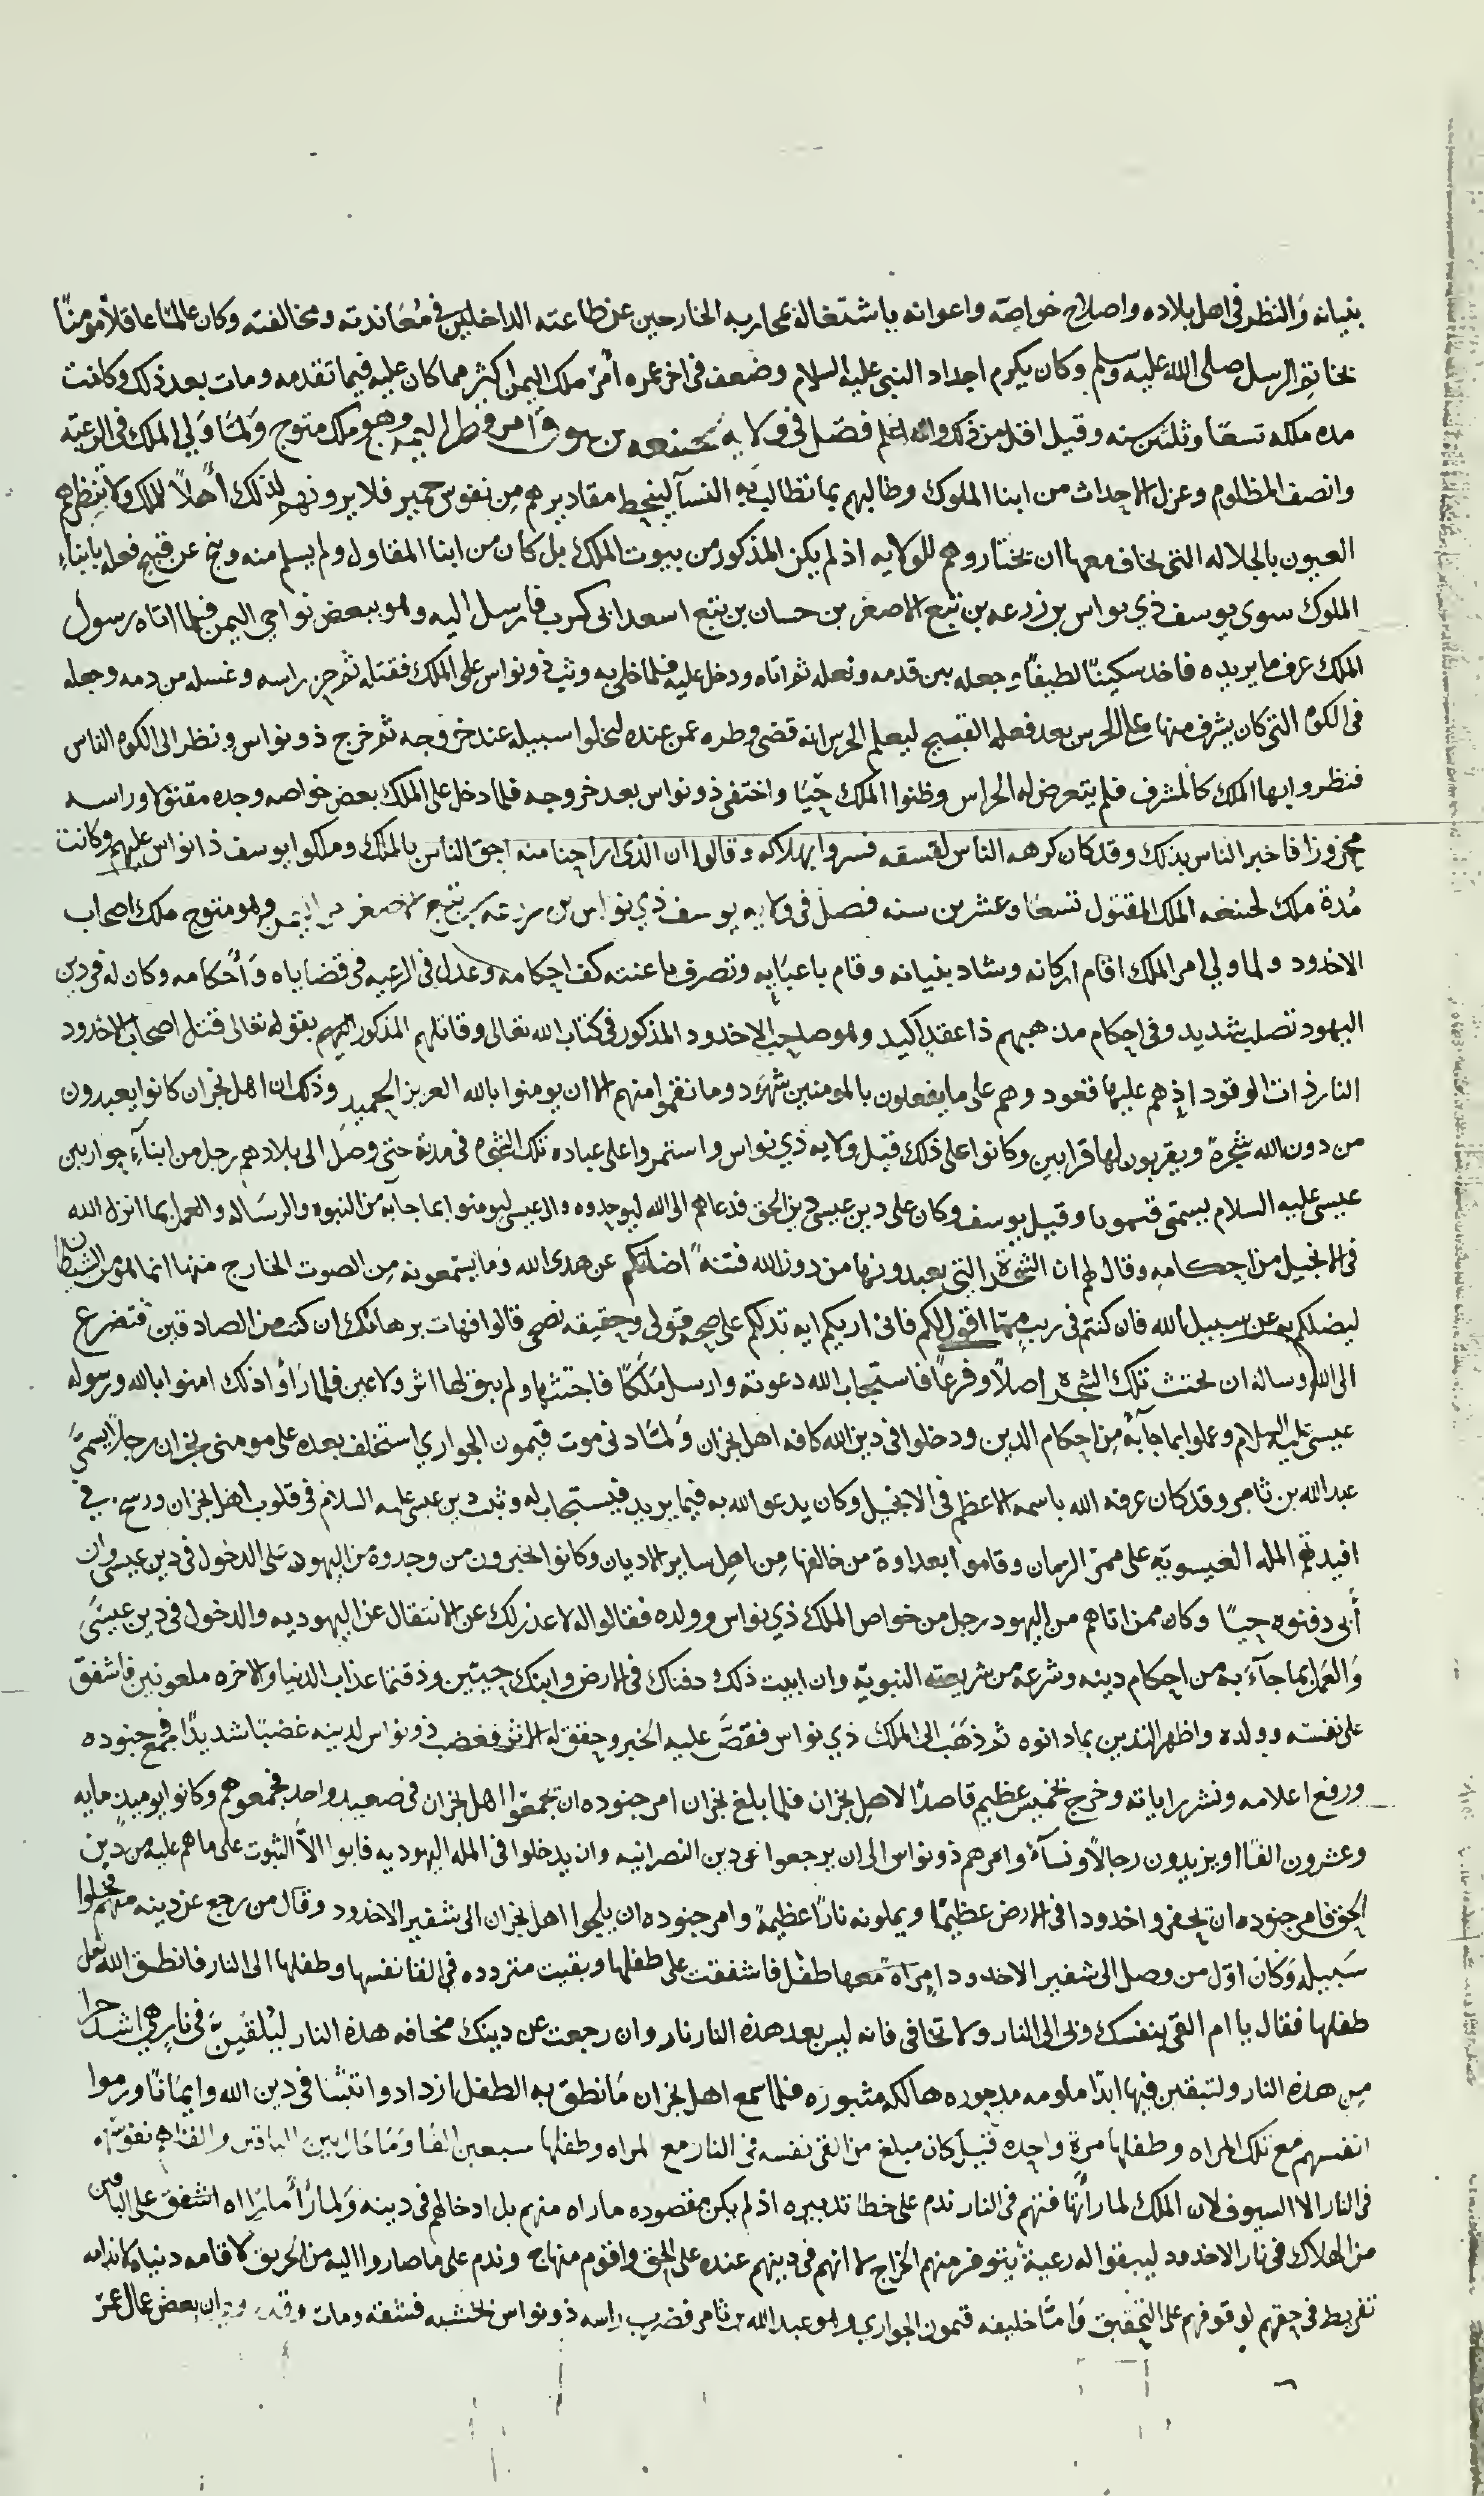 بنيانه والنظر في اهل بلاده واصلاح خواصه واعوانه باشتغاله بمحاربه الخارجين عن طاعته الداخلين في معاندته ومخالفته وكان عالمًا عاقلًا مومنًا
بخاتم الرسل صلى الله عليه وسلم وكان يكرم اجداد النبي عليه السلام وضعف في اخر عمره أمر ملك اليمن اكثر مما كان عليه فيما تقدمه ومات بعد ذلك وكانت
مده ملكه تسعًا وثلثين سنه وقيل اقل من ذلك والله اعلم فصل في ولايه لخنيعه بن امر وطرا اليمن وهو ملك متوج ولما ولي الملك في الرعيه
وانصف المظلوم وعزل الاحداث من ابنا الملوك وطالبهم بما تطالب به النسآ لينحط مقاديرهم من نفوس حمير فلا يرونهم لذلك أهلًا للملك ولا تنظرهم
العيون بالجلاله التي يخاف معها ان تختاروهم للولايه اذ لم يكن المذكور من بيوت الملك بل كان من ابنا المقاول ولم يسلم منه وينج عن قبيح فعله بابناء
الملوك سوى يوسف ذي نواس بن زرعه بن تبع الاصغر بن حسان بن تبع اسعد ابي كرب فارسل اليه وهو ببعض نواحي اليمن فلما اتاه رسول
الملك عرف ما يريده فاخذ سكينًا لطيفًا وجعله بين قدمه ونعله ثم اتاه ودخل عليه فلما خلي به وثب ذو نواس على الملك فقتله ثم حز راسه وغسله من دمه وجعله
في الكوه التي كان يشرف منها على الحرس بعد فعله القبيح ليعلم الحرس انه قضى وطره عمن عنده ليخلوا سبيله عند خروجه ثم خرج ذو نواس ونظر الى الكوه الناس
فنظروا بها الملك كالمشرف فلم يتعرض له الحراس وظنوا الملك حيًا واختفى ذو نواس بعد خروجه فلما دخل على الملك بعض خواصه وجده مقتولًا وراسه
محزوزا فاخبر الناس بذلك وقد كان كرهه الناس لفسقه فسروا بهلاكه وقالوا ان الذى اراحنا منه احق الناس بالملك وملكوا يوسف ذا نواس عليهم وكانت
مُدة ملك لخنيعه الملك المقتول تسعًا وعشرين سنه فصل في ولايه يوسف ذي نواس بن زرعه بن تبع الاصغر وهو متوج ملك اصحاب
الاخدود ولما ولي امر الملك اقام اركانه وشاد بنيانه وقام باعبايه وتصرف ما عنته كف احكامه وعدل في الرعيه في قضاياه وأحكامه وكان له في دين
اليهود تصلب شديد وفي احكام مذهبهم ذا عقد اكيد وهو صاحب الاخدود المذكور في كتاب الله تعالى وقاتلهم المذكور اليهم بقوله تعالى قتل اصحاب الاخدود
النار ذات الوقود اذ هم عليها قعود وهم على ما يفعلون بالمومنين شهود وما نقموا منهم الا ان يومنوا بالله العزيز الحميد وذلك ان اهل نجران كانوا يعبدون
من دون الله شجرة ويقربون لها قرابين وكانوا على ذلك قبل ولايه ذي نواس واستمروا على عباده تلك الشجره في مدة حتى وصل الى بلادهم رجل من ابناء حواريين
عيسى عليه السلام يسمى قيمون وقيل يوسف وكان على دين عيسى دين الحق فدعاهم الى الله ليوحدوه والى عيسى ليومنوا بما جابه من النبوه والرساله والعمل بما انزل الله
في الانجيل من احكامه وقال لهم ان الشجرة التي يعبدونها من دون الله فتنة اضلتكم عن هدى الله وما يستمعونه من الصوت الخارج منها انما هو من الشيطان
ليضلكم به عن سبيل الله فان كنتم في ريب مما اقول لكم فاني اريكم ايه تدلكم على صحه قولي وحقيقه نصحي قالوا فهات برهانك ان كنت من الصادقين فتضرع
الى الله وساله ان يجتث تلك الشجره اصلًا وفرعًا فاستجاب الله دعوته وارسل ملكًا فاجتثها ولم يبق لها اثر ولا عين فلما رأوا ذلك امنوا بالله ورسوله
عيسى عليه السلام وعملوا بما جآء به من احكام الدين ودخلوا في دين الله كافه اهل نجران ولما دنى موت قيمون الحواري استخلف بعده على مومني نجران رجلًا يسمى
عبد الله بن ثامر وقد كان عرفه الله باسمه الاعظم في الانجيل وكان يدعو الله به فيما يريد فيستجاب له وثبت دين عيسى عليه السلام في قلوب اهل نجران ورسخ في
افيدتهم المله العيسويه على ممر الزمان وقاموا بعداوة من خالفها من اهل ساير الاديان وكانوا يخيرون من وجدوه من اليهود على الدخول في دين عيسى وان
أبى دفنوه حيًا وكان ممن اتاهم من اليهود رجل من خواص الملك ذي نواس وولده فقالوا له لا عذر لك عن الانتقال عن اليهوديه والدخول في دين عيسى
والعمل بما جآء به من احكام دينه وشرعه من شريعته النبويه وان ابيت ذلك دفناك في الارض وابنك حيين وذقتما عذاب الدنيا والاخره ملعونين فاشفق
على نفسه وولده واظهر التدين بما دانوه ثم ذهب الى الملك ذي نواس فقص عليه الخبر وحقق له الاثر فغضب ذو نواس لدينه غضبًا شديدًا فجمع جنوده
ورفع اعلامه ونشر راياته وخرج بخميس عظيم قاصدًا لاهل نجران فلما بلغ نجران امر جنوده ان يجمعوا اهل نجران في صعيد واحد فجمعوهم وكانوا يوميذ مايه
وعشرون الفًا او يزيدون رجالًا ونسآءً وامرهم ذو نواس الى ان يرجعوا عن دين النصرانيه وان يدخلوا في المله اليهوديه فابوا الا الثبوت على ما هم عليه من دين
الحق فامر جنوده ان يحفروا اخدودا في الارض عظيمًا ويملونه نارًا عظيمة وامر جنوده ان يلجوا اهل نجران الى شفير الاخدود وقال من رجع عن دينه منهم فخلوا
سبيله وكان اول من وصل الى شفير الاخدود امراة معها طفل فاشفقت على طفلها وبقيت متردده في القا نفسها وطفلها الى النار فانطق الله تعالى
طفلها فقال يا ام القي بنفسك وبي الى النار ولا تخافي فانه ليس بعد هذه النار نار وان رجعت عن دينك مخافه هذه النار لتلقين في نار هي اشد حرا
من هذه النار ولتبقين فيها ابدًا ملومه مدحوره هالكه مثبوره فلما سمع اهل نجران ما نطق به الطفل ازدادوا تثبتا في دين الله وايمانًا ورموا
انفسهم مع تلك المراه وطفلها مرة واحده قيل كان مبلغ من القى نفسه في النار مع المراه وطفلها سبعين الفًا وما حال بين الباقين والقا نفوسهم
في النار الا السيوف لان الملك لما رأى تهافتهم في النار ندم على خطا تدبيره اذ لم يكن مقصوده ماراه منهم بل ادخالهم في دينه ولما رأى ما راه اشفق على الباقين
من الهلاك في نار الاخدود ليبقوا له رعية يتوفر منهم الخراج لا انهم في دينهم عنده على الحق واقوم منهاج وندم على ما صاروا اليه من الحريق لاقامه دنياه لا ندامه
تفريط في حقهم لوقوفهم على التحقيق واما خليفه قيمون الحواري وهو عبد الله بن ثامر فضرب راسه ذو نواس بخشبه فشقه ومات وقيل وجد ان بعض عمال عمر